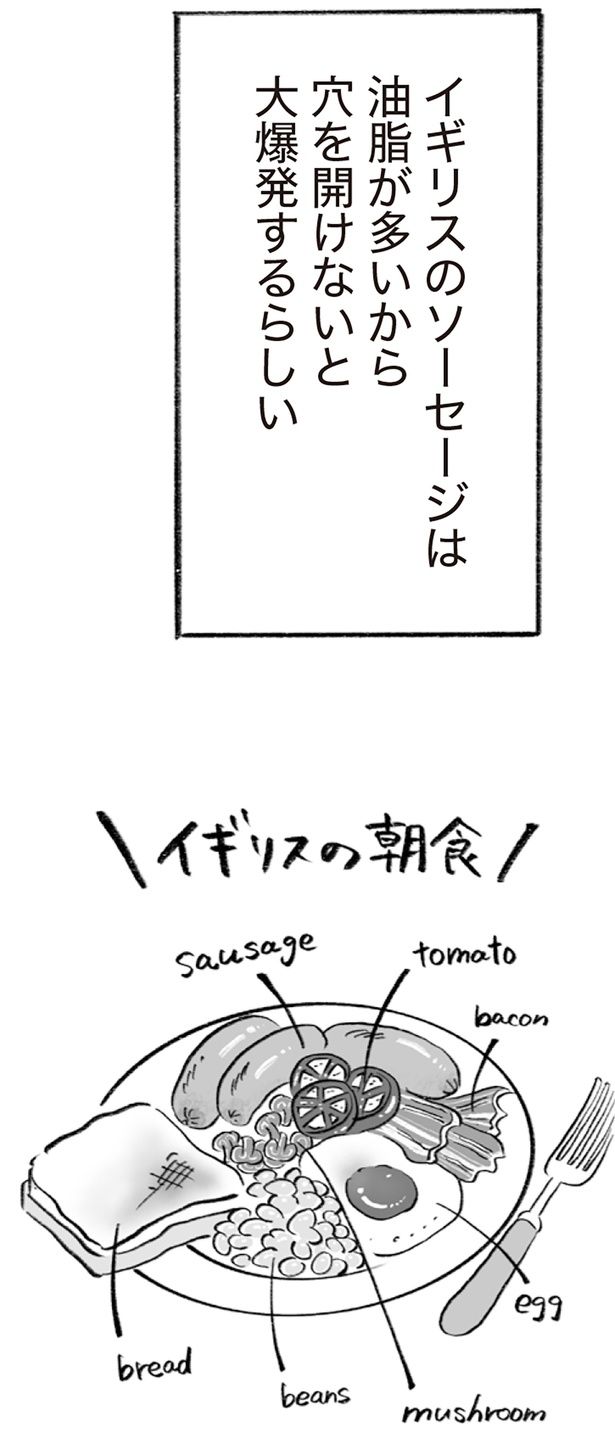 イギリスのソーセージは
油脂が多いから
穴を開けないと
大爆発するらしい
イギリスの朝食
sausage
tomato
bacon
egg
bread
beans
mushroom